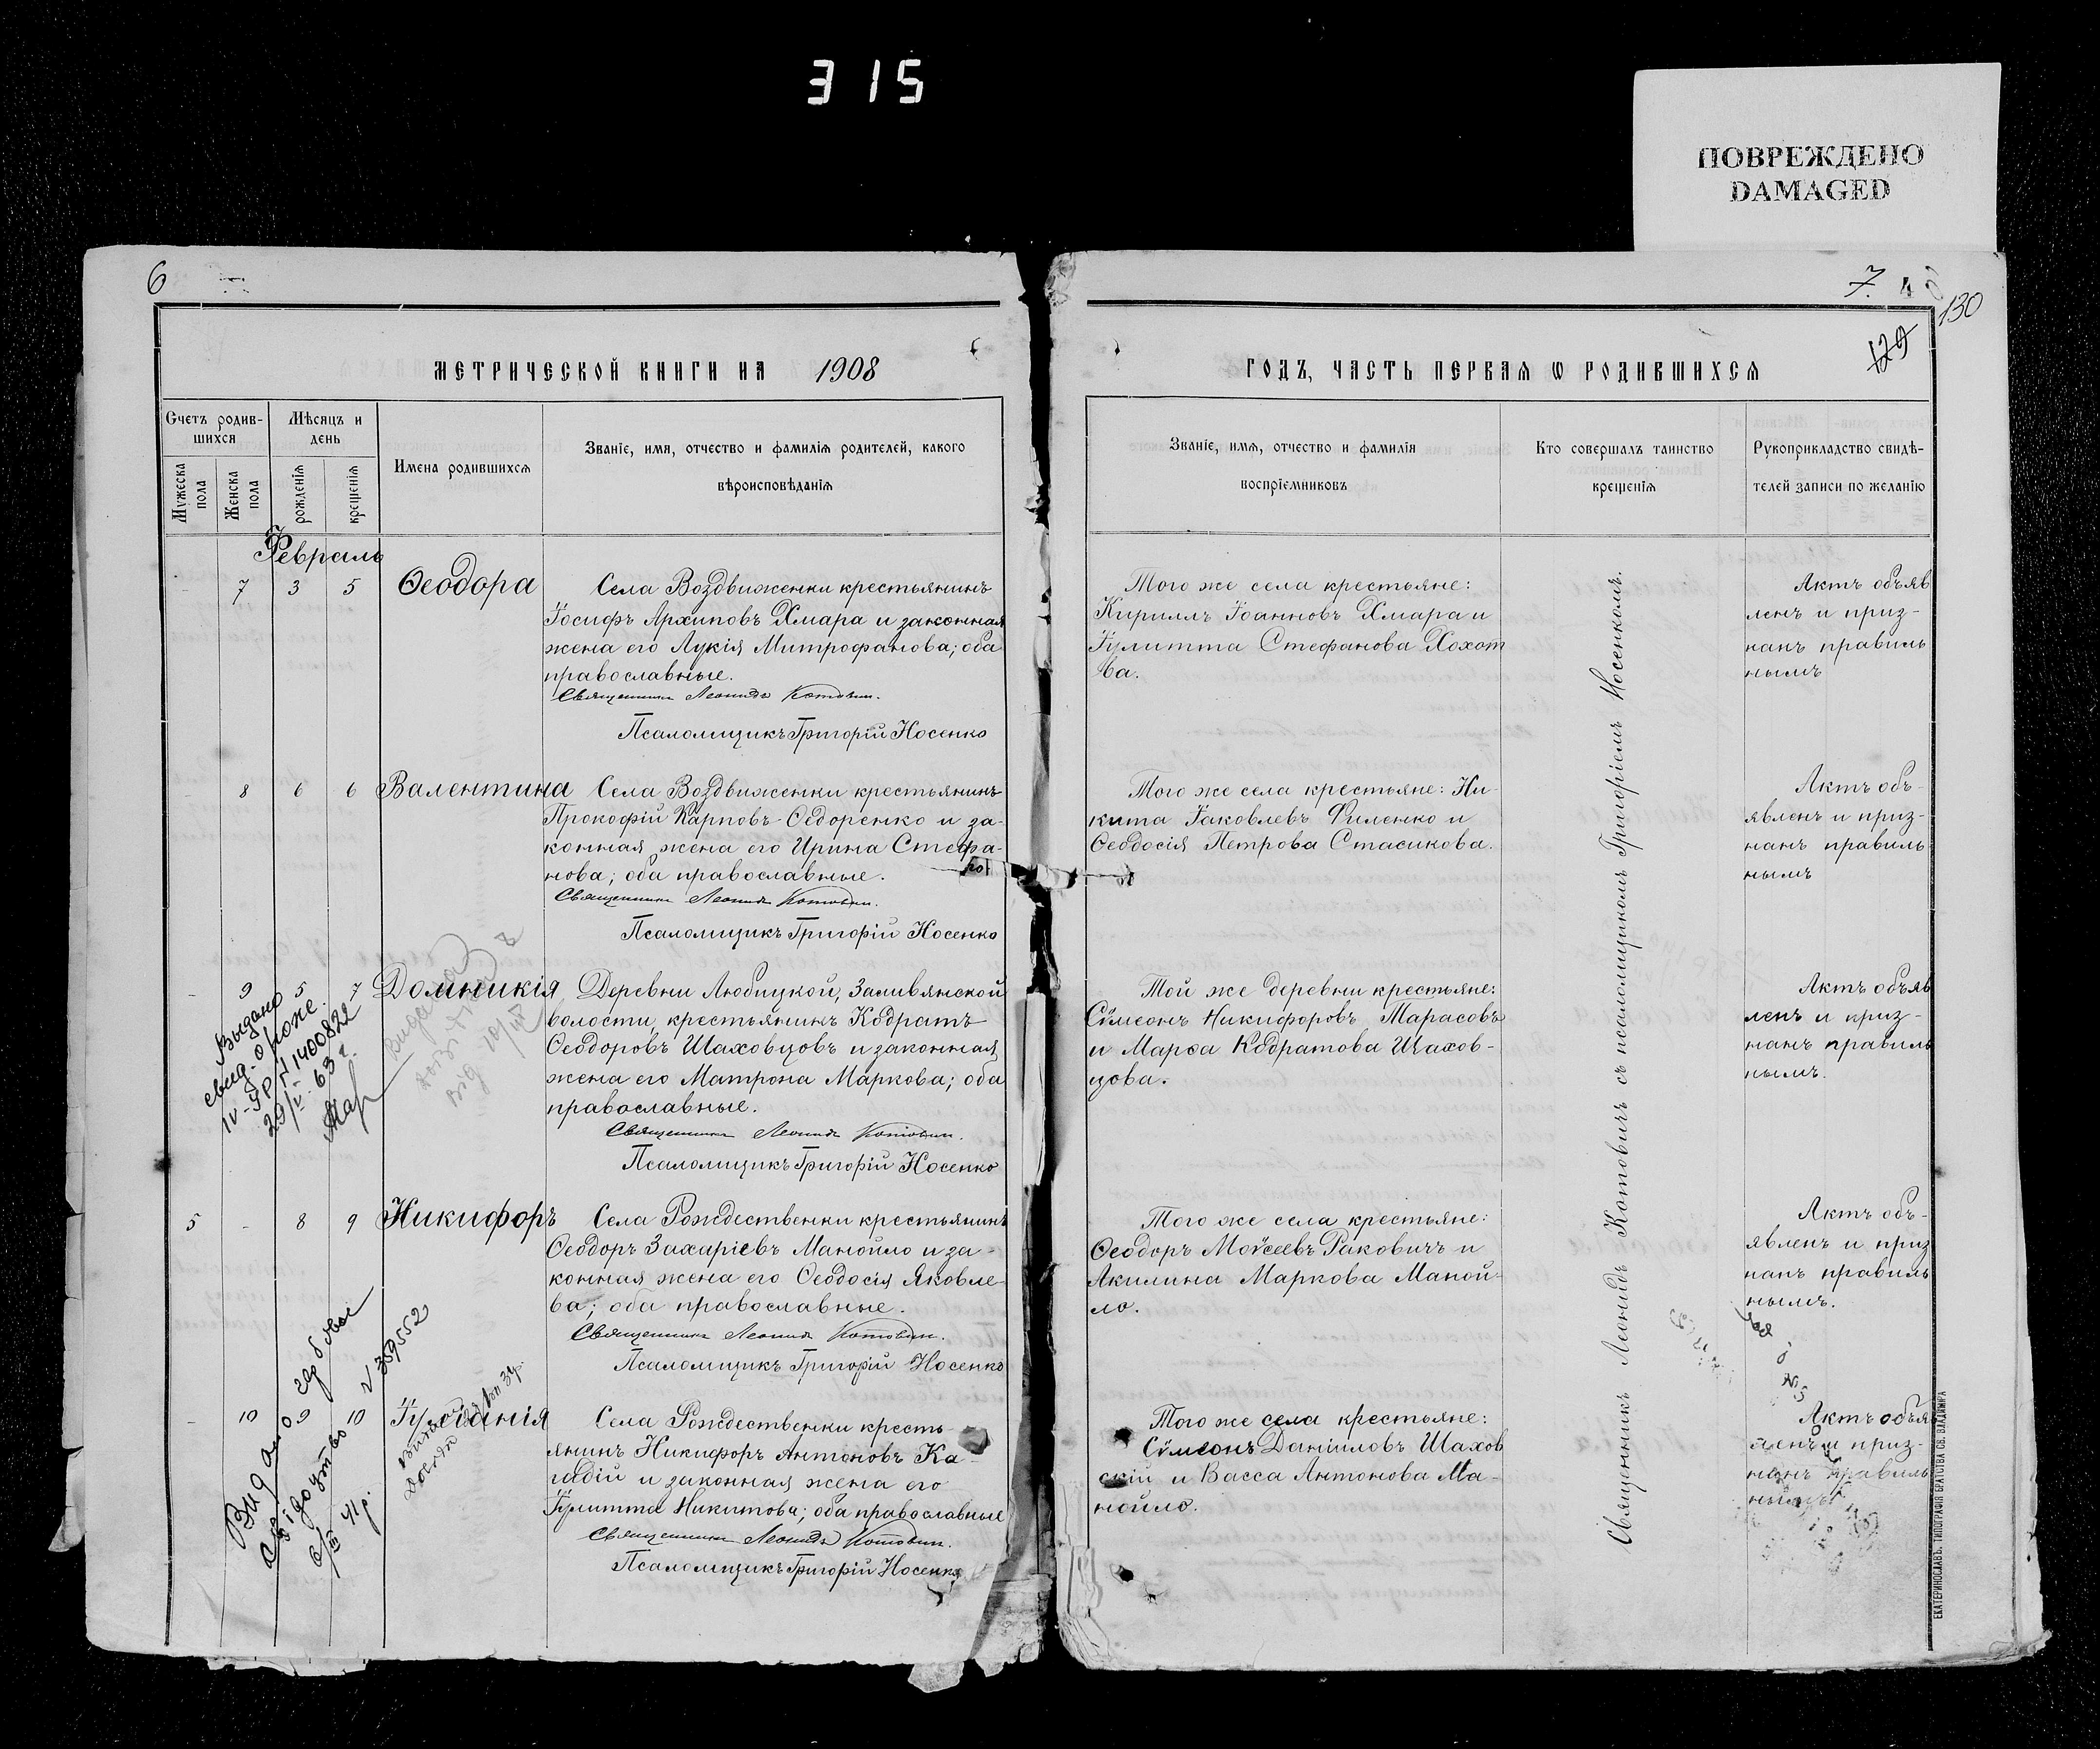 315
ПОВРЕЖДЕНО
DAMAGED
6
7.
4
130
129
МЕТРИЧЕСКОЙ КНИГИ НА 1908
ГОДЪ, ЧАСТЬ ПЕРВАЯ Ѡ РОДИВШИХСЯ
Счетъ родив-
шихся
Мѣсяцъ и
день
Мужеска
пола
Женска
пола
рожденія
крещенія
Имена родившихся
Званіе, имя, отчество и фамилія родителей, какого
вѣроисповѣданія
Званіе, имя, отчество и фамилія
воспріемниковъ
Кто совершалъ таинство
крещенія
Рукоприкладство свидѣ-
телей записи по желанію
Февраль
7 3 5 Ѳеодора
Села Воздвиженки крестьянинъ
Іосифъ Архиповъ Хмара и законная
жена его Лукія Митрофанова; оба
православные.
Священникъ Леонидъ Котовичъ.
Псаломщикъ Григорій Носенко
Того же села крестьяне:
Кириллъ Іоанновъ Хмара и
Іулитта Стефанова Хохот
ва.
Актъ объяв
ленъ и приз-
нанъ правиль
нымъ
8 6 6 Валентина
Села Воздвиженки крестьянинъ
Прокофій Карповъ Ѳедоренко и за-
конная жена его Ирина Стефа-
нова; оба православные.
Священникъ Леонидъ Котовичъ.
Псаломщикъ Григорій Носенко
Того же села крестьяне: Ни-
кита Іаковлевъ Филенко и
Ѳеодосія Петрова Стасикова.
Актъ объ-
явленъ и приз-
нанъ правиль
нымъ
- 9 5 7 Домникія
Деревни Любицкой, Заливянской
волости, крестьянинъ Кодратъ
Ѳеодоровъ Шаховцовъ и законная
жена его Матрона Маркова; оба
православные.
Священникъ Леонидъ Котовичъ.
Псаломщикъ Григорій Носенко
Той же деревни крестьяне:
Сѵмеонъ Никифоровъ Марасовъ
и Марѳа Кодратова Шахов-
цова.
Актъ объяв
ленъ и приз-
нанъ правиль
нымъ.
Выдано
свид. о рожс.
IV-ЯР N 1400822
29/V-63 г.
5 - 8 9 Никифоръ
Села Рождественки крестьянинъ
Ѳеодоръ Захаріевъ Манойло и за-
конная жена его Ѳеодосія Яковле-
ва; оба православные.
Священникъ Леонидъ Котовичъ.
Псаломщикъ Григорій Носенко
Того же села крестьяне:
Ѳеодоръ Моѵсеевъ Раковичъ и
Акилина Маркова Маной-
ло.
Актъ объ-
явленъ и приз
нанъ правиль
нымъ.
- 10 9 10 Іуліанія
Села Рождественки кресть
янинъ Никифоръ Антоновъ Ка-
гадій и законная жена его
Іулитта Никитова; оба православные
Священникъ Леонидъ Котовичъ.
Псаломщикъ Григорій Носенко
Того же села крестьяне:
Сѵмеонъ Даніиловъ Шахов
скій и Васса Антонова Ма-
нойло.
Актъ объяв
ленъ и приз-
нанъ правиль
нымъ
Видано
свідоцтво
№ 359552
6/III 41 р.
Священникъ Леонидъ Котовичъ съ псаломщикомъ Григоріемъ Носенкомъ.
ЕКАТЕРИНОСЛАВЪ. ТИПОГРАФІЯ БРАТСТВА СВ. ВЛАДИМІРА